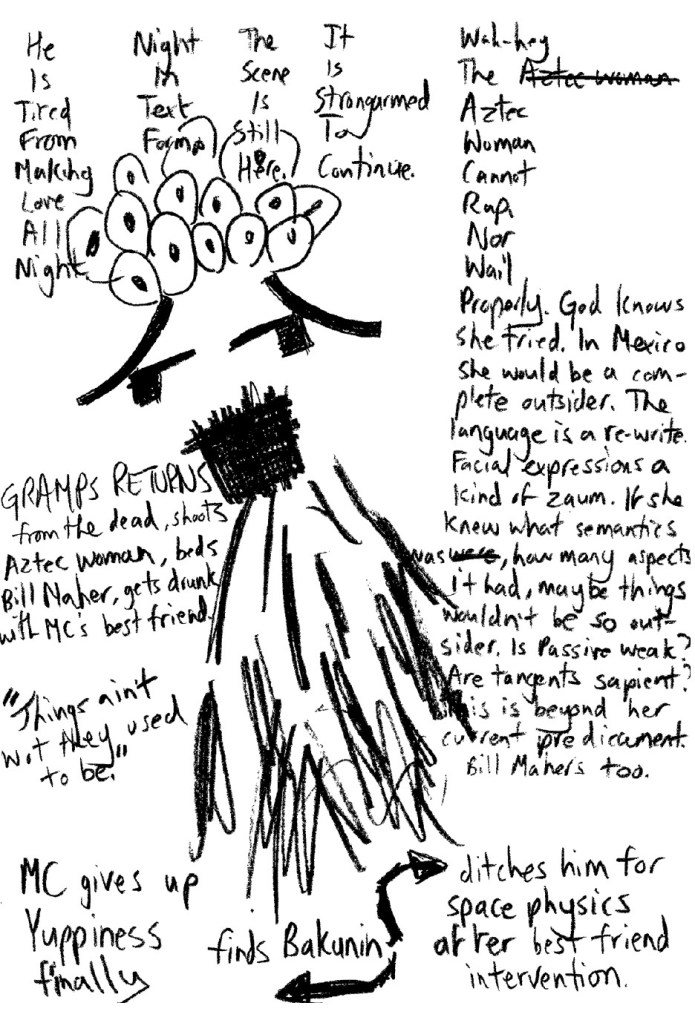 He
Is
Tired
From
Making
Love
All
Night.
Night
In
Text
Form.
The
Scene
Is
Still
Here.
It
Is
Strongarmed
To
Continue.
Wah-hey
The Aztec woman
Aztec
Woman
Cannot
Rap,
Nor
Wail
Properly. God knows
she tried. In Mexico
she would be a com-
plete outsider. The
language is a re-write.
Facial expressions a
kind of zaum. If she
knew what semantics
was were, how many aspects
it had, maybe things
wouldn't be so out-
sider. Is Passive weak?
Are tangents sapient?
This is beyond her
current predicament.
Bill Mahers too.
GRAMPS RETURNS
from the dead, shoots
Aztec woman, beds
Bill Maher, gets drunk
with MC's best friend.
"Things ain't
wot they used
to be."
MC gives up
Yuppiness
finally
finds Bakunin
ditches him for
space physics
after best friend
intervention.